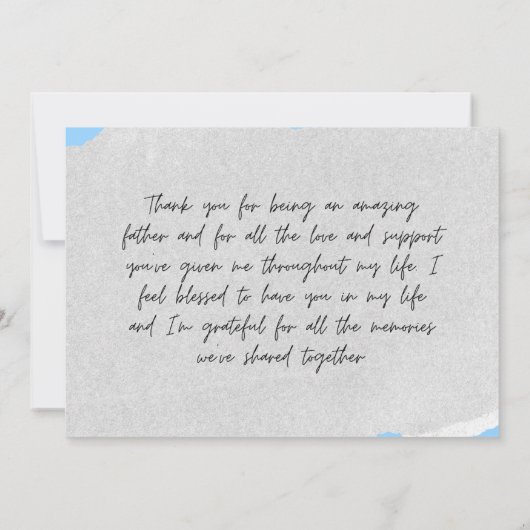 Thank you for being an amazing
father and for all the love and support
you've given me throughout my life. I
feel blessed to have you in my life
and I'm grateful for all the memories
we've shared together